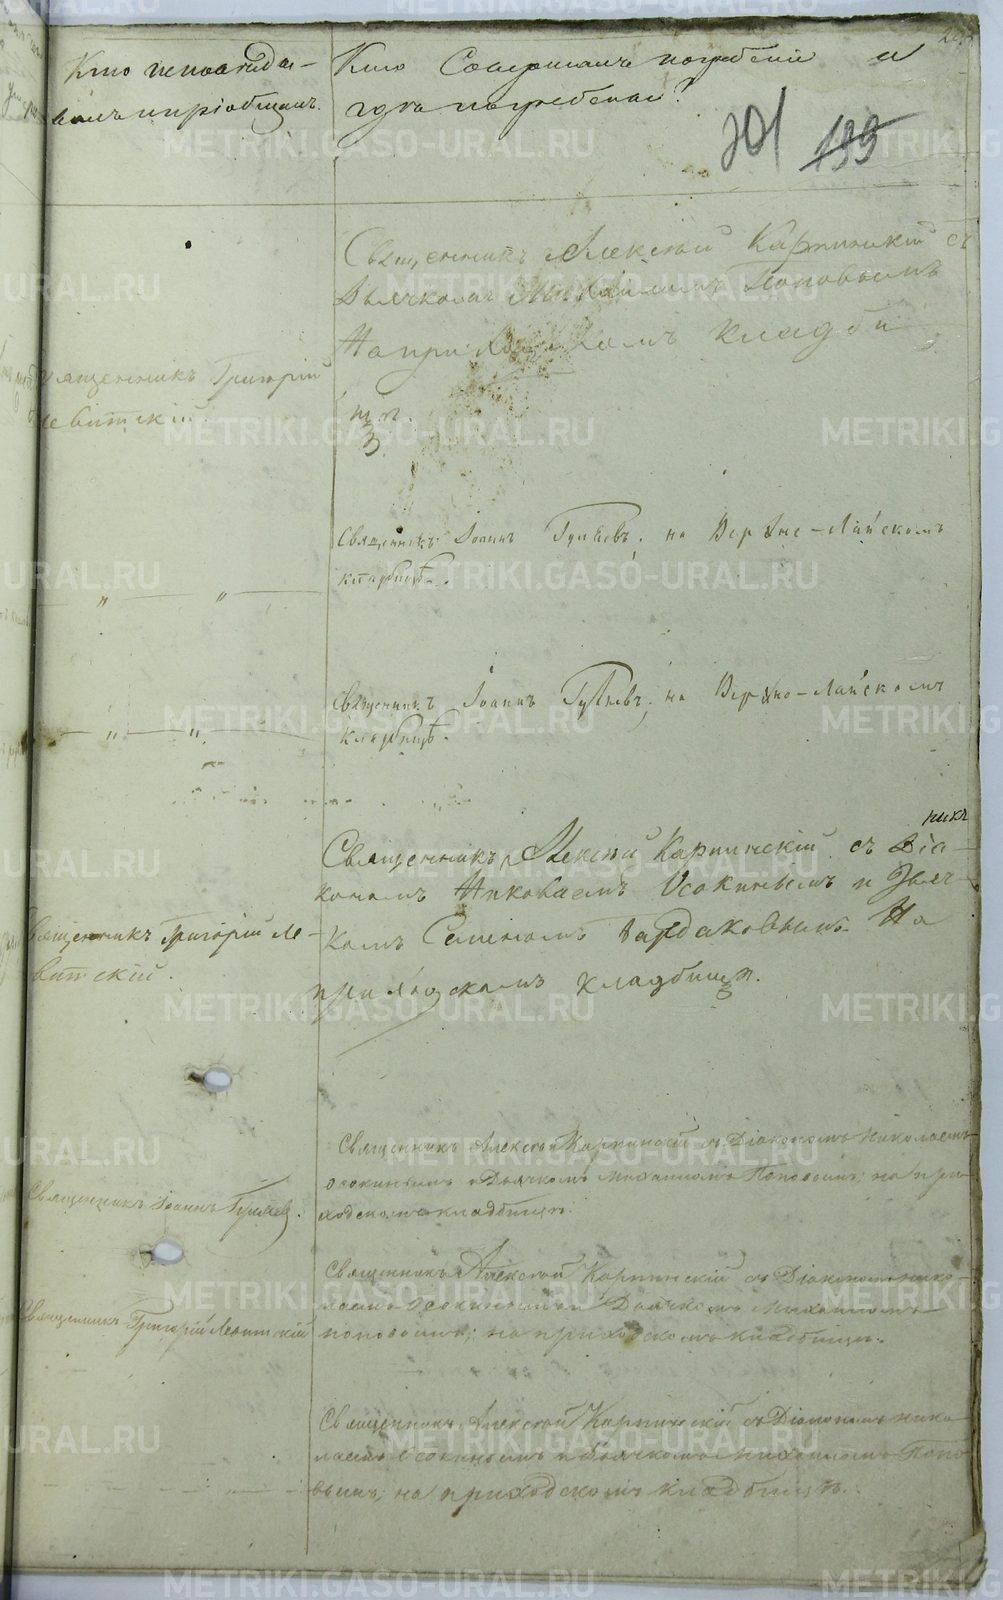 Кто исповѣды-
валъ и пріобщалъ.
Кто Совершалъ погребеніе и
гдѣ погребены?
201 199
Священникъ Алексѣй Карпинскій съ
Дьячкомъ Михаиломъ Поповымъ
На приходскомъ кладби
щѣ.
Священникъ Григорій
Левитскій.
Священникъ Іоаннъ Гуляевъ. на Верхне-Лайскомъ
кладбищѣ.
— „ — „ —
Священникъ Іоаннъ Гуляевъ, на Верхно-Лайскомъ
кладбищѣ.
— „ — „ —
никъ
Священникъ Алексѣй Карпинскій съ Діа-
кономъ Николаемъ Осокинымъ и Дьяч-
комъ Семеномъ Бардаковымъ На
приходскомъ кладбищѣ.
Священникъ Григорій Ле-
витскій.
Священникъ Алексѣй Карпинскій съ Діакономъ Николаемъ
Осокинымъ и Дьячкомъ Михаиломъ Поповымъ; на при-
ходскомъ кладбищѣ.
Священникъ Іоаннъ Гуляевъ.
Священникъ Алексѣй Карпинскій съ Діакономъ Нико-
лаемъ Осокинымъ и Дьячкомъ Михаиломъ
Поповымъ; на приходскомъ кладбищѣ.
Священникъ Григорій Левитскій
Священникъ Алексѣй Карпинскій съ Діакономъ Нико-
лаемъ Осокинымъ и Дьячкомъ Михаиломъ Попо-
вымъ, на приходскомъ кладбищѣ.
METRIKI.GASO-URAL.RU